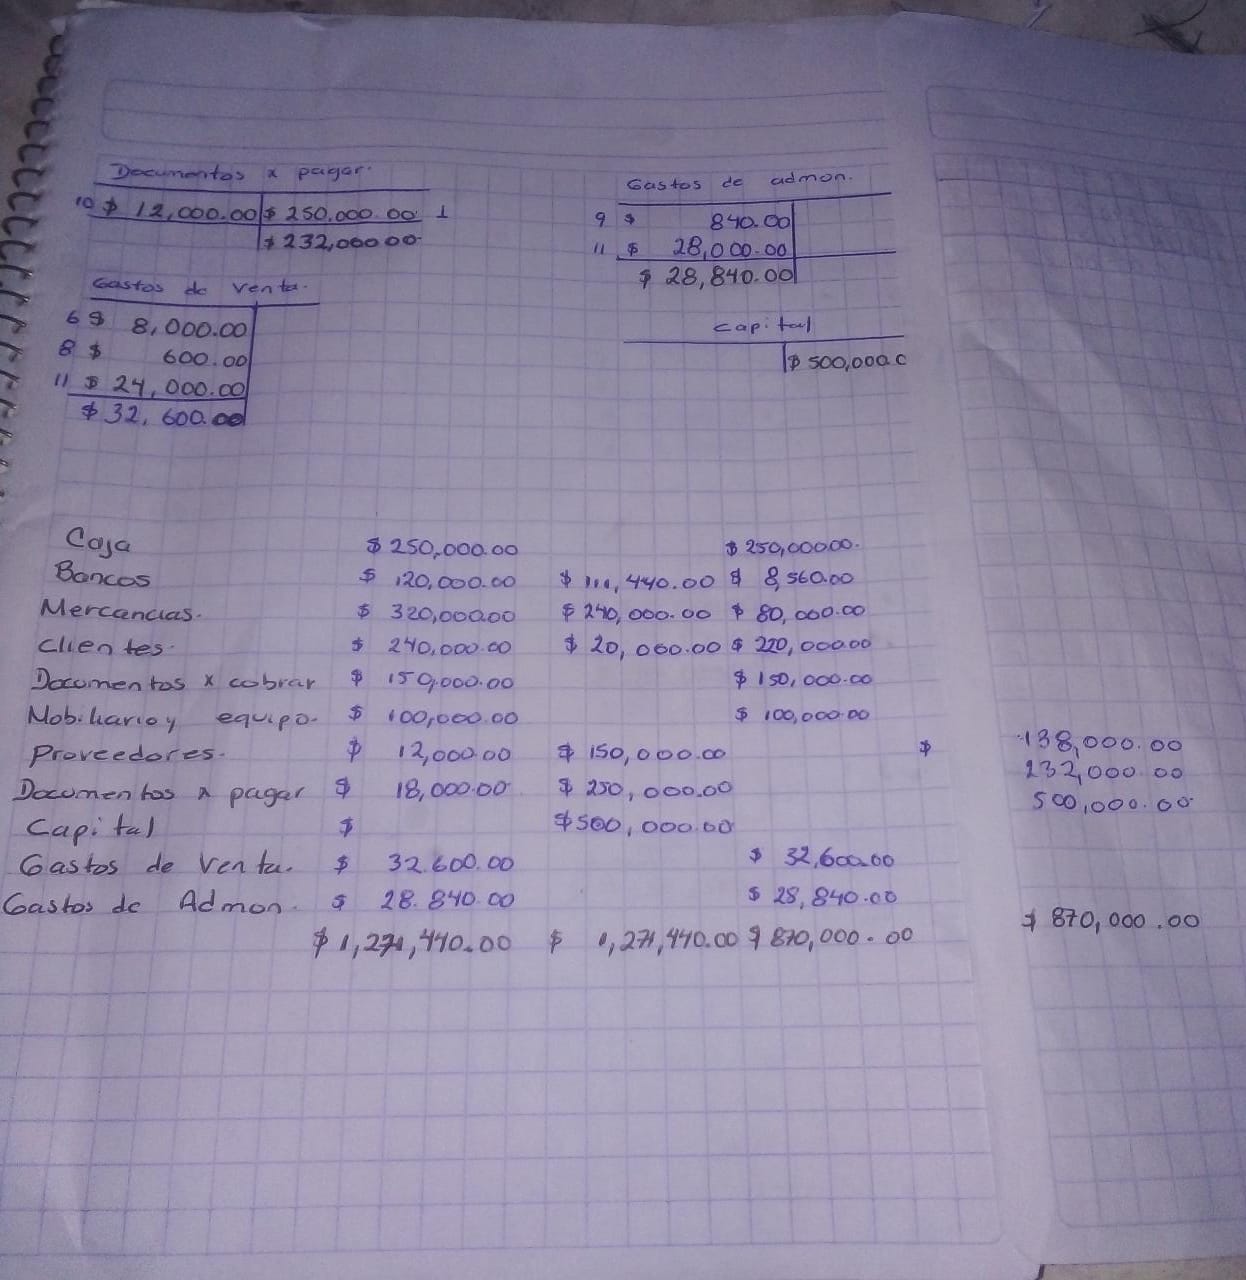 Documentos x pagar.
10 $ 12,000.00 $ 250,000.00 1
$ 232,000.00
Gastos de admon.
9 $ 840.00
11 $ 28,000.00
$ 28,840.00
Gastos de venta.
6 $ 8,000.00
8 $ 600.00
11 $ 24,000.00
$ 32,600.00
capital
$ 500,000.0
Caja $ 250,000.00 $ 250,000.00.
Bancos $ 120,000.00 $ 111,440.00 $ 8,560.00
Mercancias. $ 320,000.00 $ 240,000.00 $ 80,000.00
Clientes. $ 240,000.00 $ 20,000.00 $ 220,000.00
Documentos x cobrar $ 150,000.00 $ 150,000.00
Mobiliario y equipo. $ 100,000.00 $ 100,000.00
Proveedores. $ 12,000.00 $ 150,000.00 $ 138,000.00
Documentos x pagar $ 18,000.00 $ 250,000.00 232,000.00
Capital $ $ 500,000.00 500,000.00
Gastos de Venta. $ 32.600.00 $ 32,600.00
Gastos de Admon. $ 28.840.00 $ 28,840.00
$ 1,271,440.00 $ 1,271,440.00 $ 870,000.00 $ 870,000.00